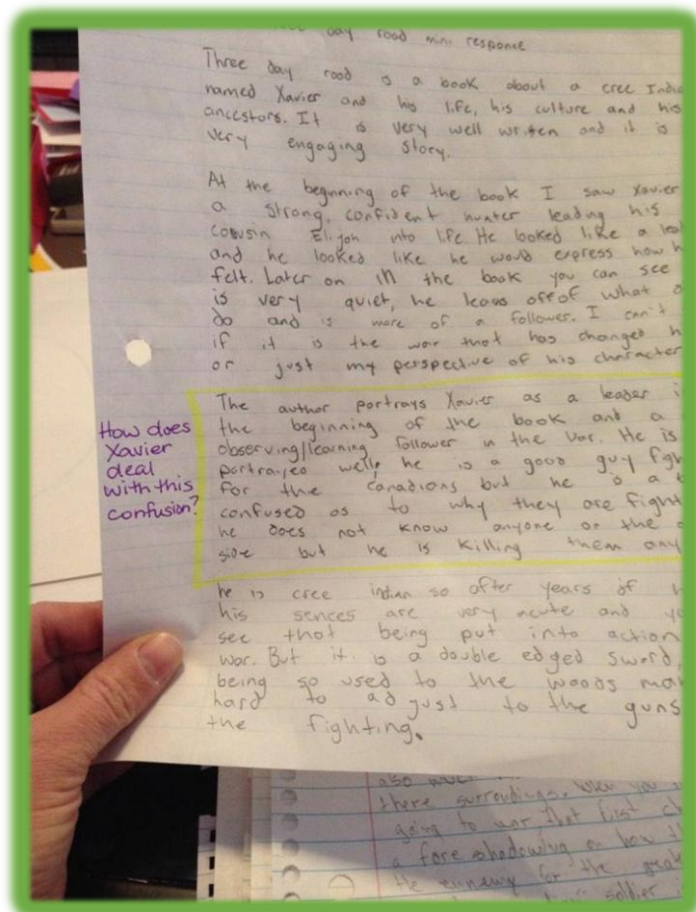 day road mini response
Three day road is a book about a cree
named Xavier and his life, his culture and his
ancestors. It is very well written and it is
very engaging story.
At the beginning of the book I saw Xavier
a strong, confident hunter leading his
Elijah into life. He looked like a
and he looked like he would express how
felt. Later on in the book you can see
is very quiet, he leans off of what
do and is more of a follower. I can't
if it is the war that has changed
or just my perspective of his character
The author portrays Xavier as a leader
the beginning of the book and a
observing/learning follower in the war. He is
portrayed well, he is a good guy
for the canadians but he is a
confused as to why they are
he does not know anyone on the
side but he is killing them
How does
Xavier
deal
with this
confusion?
he is cree indian so after years of
his sences are very acute and
see that being put into action
war. But it is a double edged sword,
being so used to the woods
hard to adjust to the guns
the fighting.
there surroundings. When you
going to war that first
a foreshadowing on how
the for the
soldier